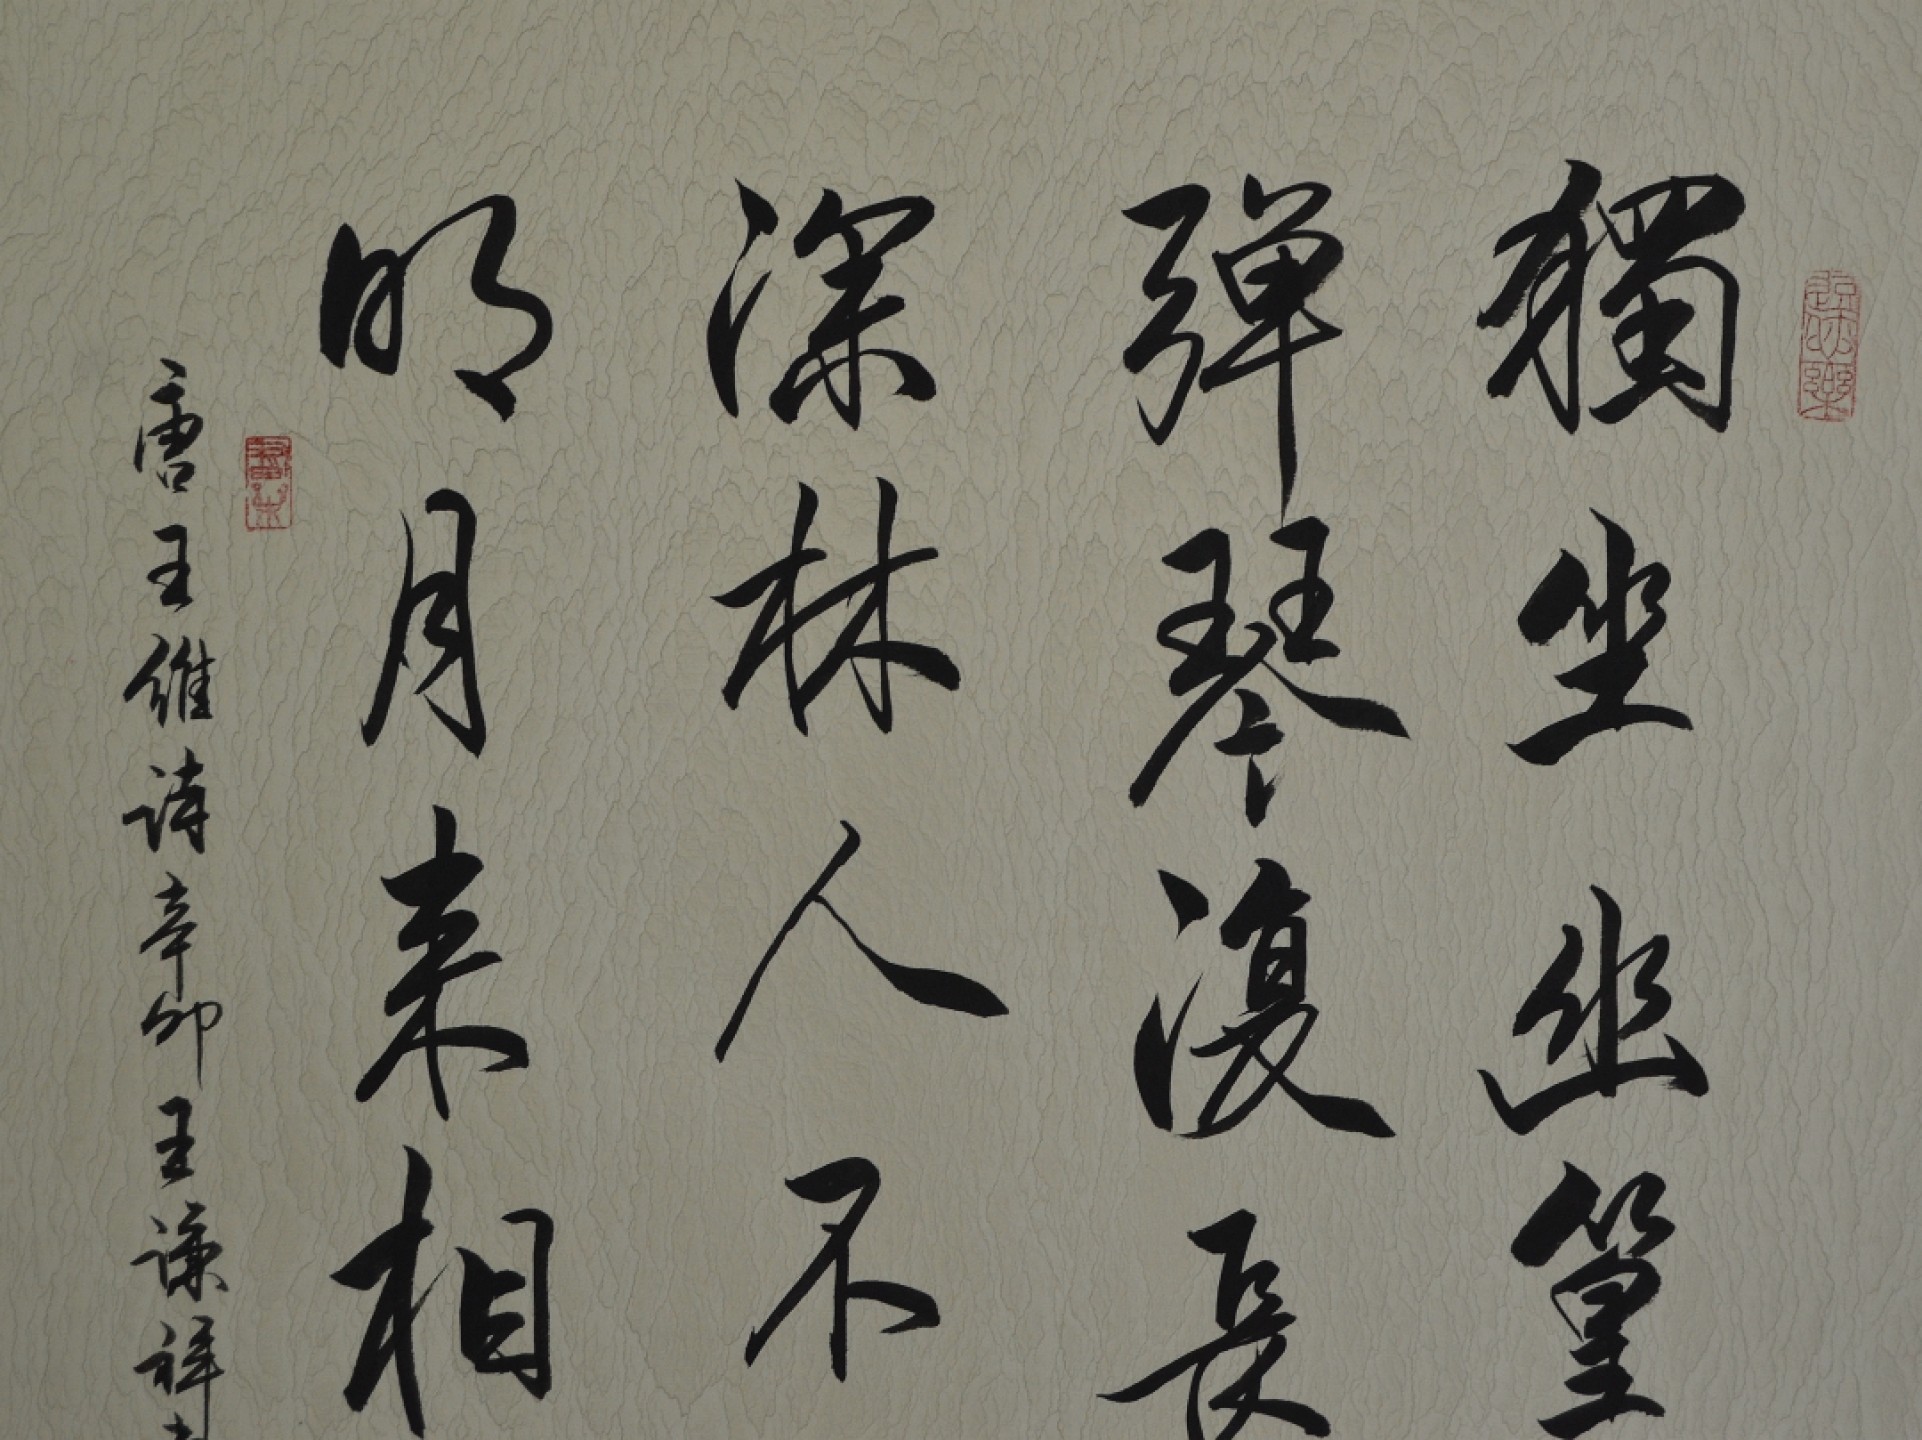 獨坐幽篁
弹琴復長
深林人不
明月来相
唐王維詩辛卯王謙祥